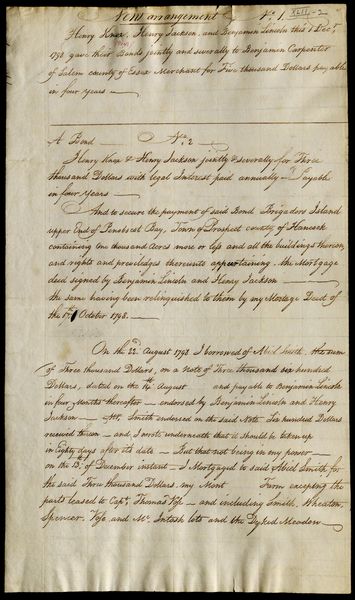 New arrangement No. 1 XLII-2
Henry Knox, Henry Jackson, and Benjamin Lincoln this 1 Decr
1798 gave their Bonds jointly and severally to Benjamin Carpenter
of Salem county of Essex Merchant for Five thousand Dollars payable
in four years —
A Bond — No. 2 —
Henry Knox & Henry Jackson jointly & severally for Three
thousand Dollars with legal Interest paid annually — Payable
in four years —
And to secure the payment of said Bond Brigadors Island
upper End of Penobscot Bay, Town of Prospect county of Hancock
containing One thousand Acres more or less and all the buildings thereon
and rights and priviledges thereunto appertaining, the Mortgage
deed signed by Benjamin Lincoln and Henry Jackson —
the same having been relinquished to them by my Mortage Deed of
the October 1798. —
On the 22d August 1798 I borrowed of Abiel Smith the sum
of Three thousand Dollars, on a Note of Three thousand six hundred
Dollars, dated on the August and payable to Benjamin Lincoln
in four Months thereafter — endorsed by Benjamin Lincoln and Henry
Jackson — Mr. Smith endorsed on the said Note Six hundred Dollars
received thereon — and I wrote underneath that it should be taken up
in Eighty days after its date — But that not being in my power —
on the of December instant — I Mortgaged to said Abiel Smith for
the said Three thousand Dollars my Mont Farm excepting the
parts leased to Capt. Thomas Vose — and including Smith, Wheaton,
Spencer, Vose and Mc. Intosh lots and the Dyked Meadow —